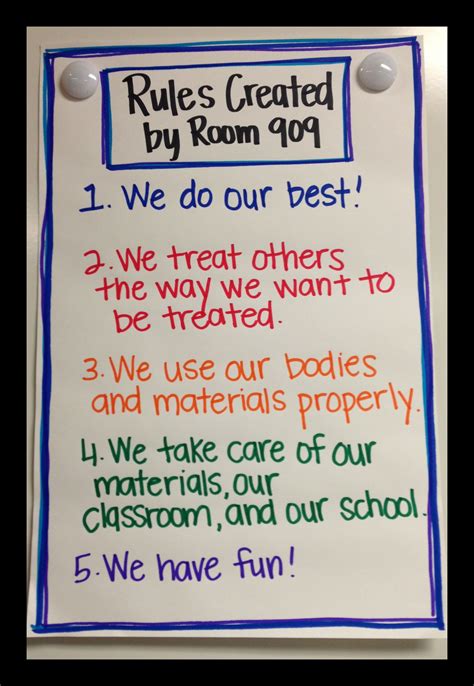 Rules Created
by Room 909
1. We do our best!
2. We treat others
the way we want to
be treated.
3. We use our bodies
and materials properly.
4. We take care of our
materials, our
classroom, and our school.
5. We have fun!